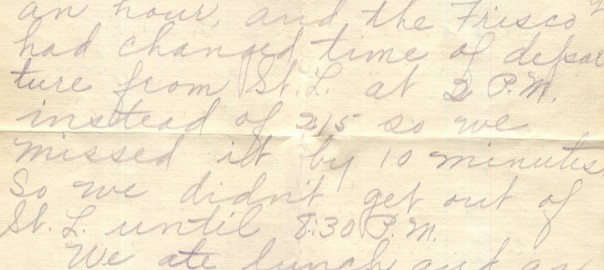 an hour, and the Frisco
had changed time of depar
ture from St. L. at 2 P.M.
instead of 2:15 so we
missed it by 10 minutes
So we didn't get out of
St. L. until 8:30 P.M.
We ate lunch and